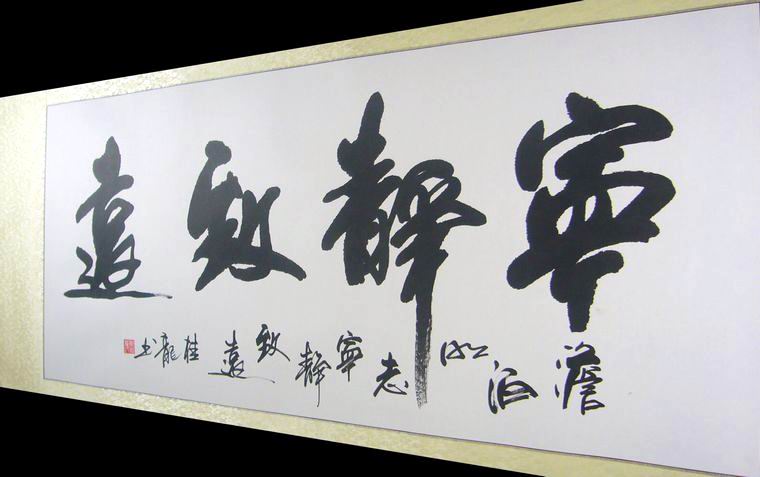 寧靜致遠
澹泊明志寧靜致遠桂龍书